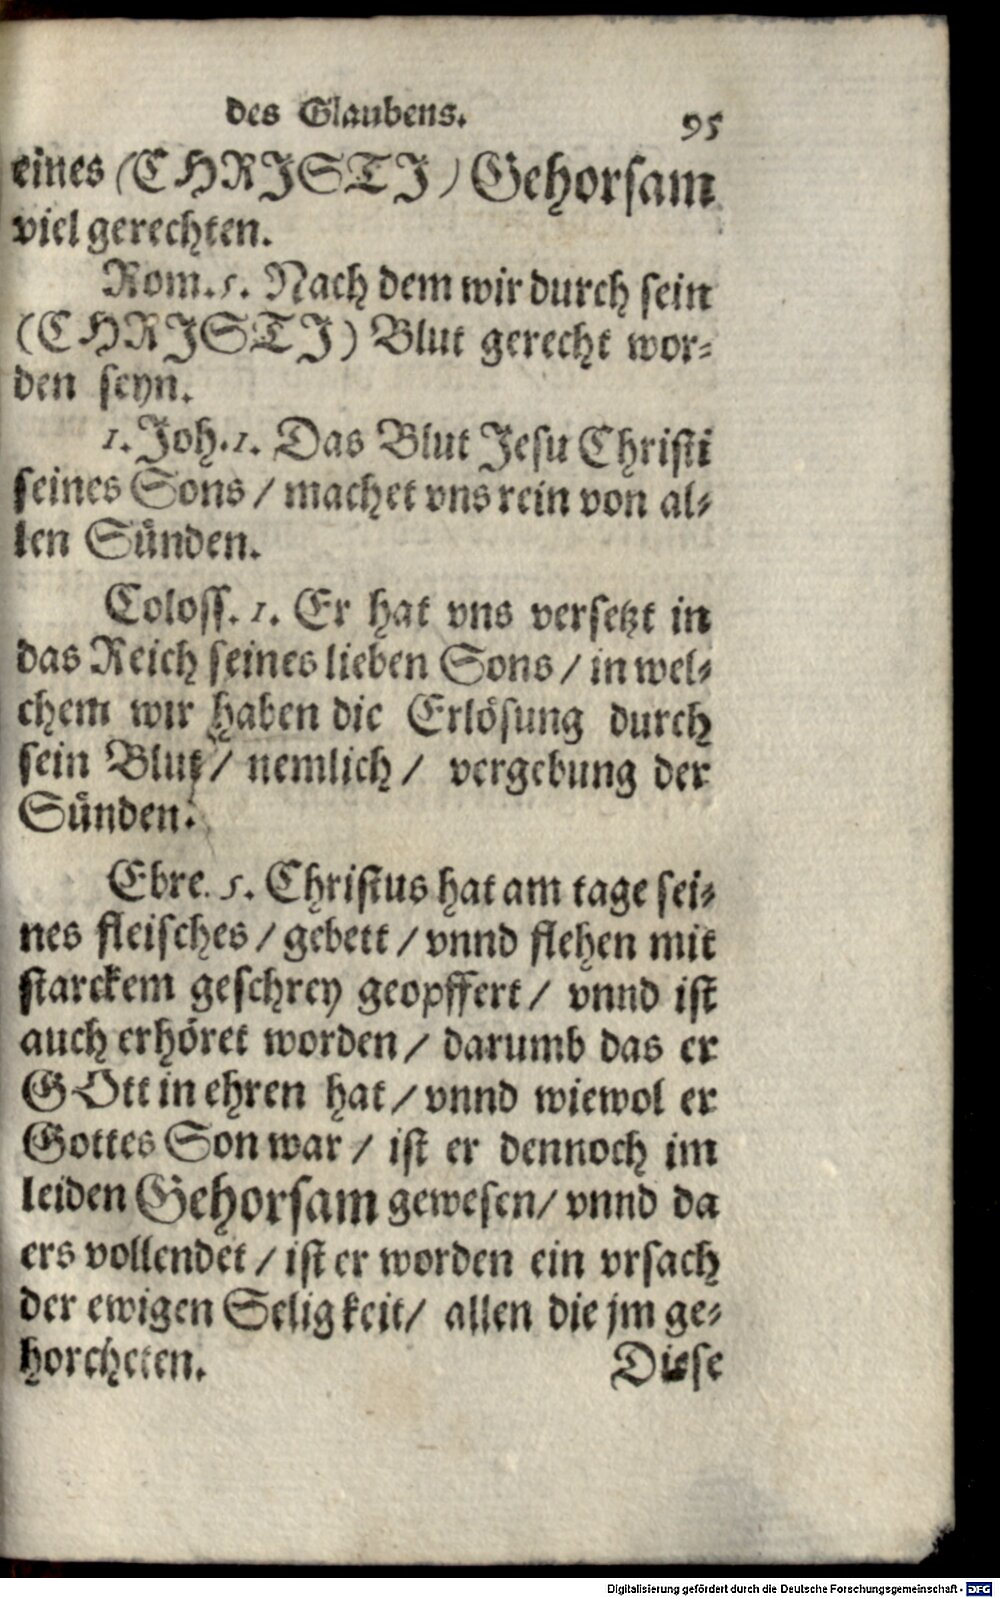 des Glaubens. 95
eines (CHRJSTJ) Gehorsam
viel gerechten.
Rom. 5. Nach dem wir durch sein
(CHRJSTJ) Blut gerecht wor-
den seyn.
1. Joh. 1. Das Blut Jesu Christi
seines Sons / machet vns rein von al-
len Sünden.
Coloss. 1. Er hat vns versetzt in
das Reich seines lieben Sons / in wel-
chem wir haben die Erlösung durch
sein Blut / nemlich / vergebung der
Sünden.
Ebre. 5. Christus hat am tage sei-
nes fleisches / gebett / vnnd flehen mit
starckem geschrey geopffert / vnnd ist
auch erhöret worden / darumb das er
GOtt in ehren hat / vnnd wiewol er
Gottes Son war / ist er dennoch im
leiden Gehorsam gewesen / vnnd da
ers vollendet / ist er worden ein vrsach
der ewigen Seligkeit / allen die jm ge-
horcheten. Diese
Digitalisierung gefördert durch die Deutsche Forschungsgemeinschaft - DFG